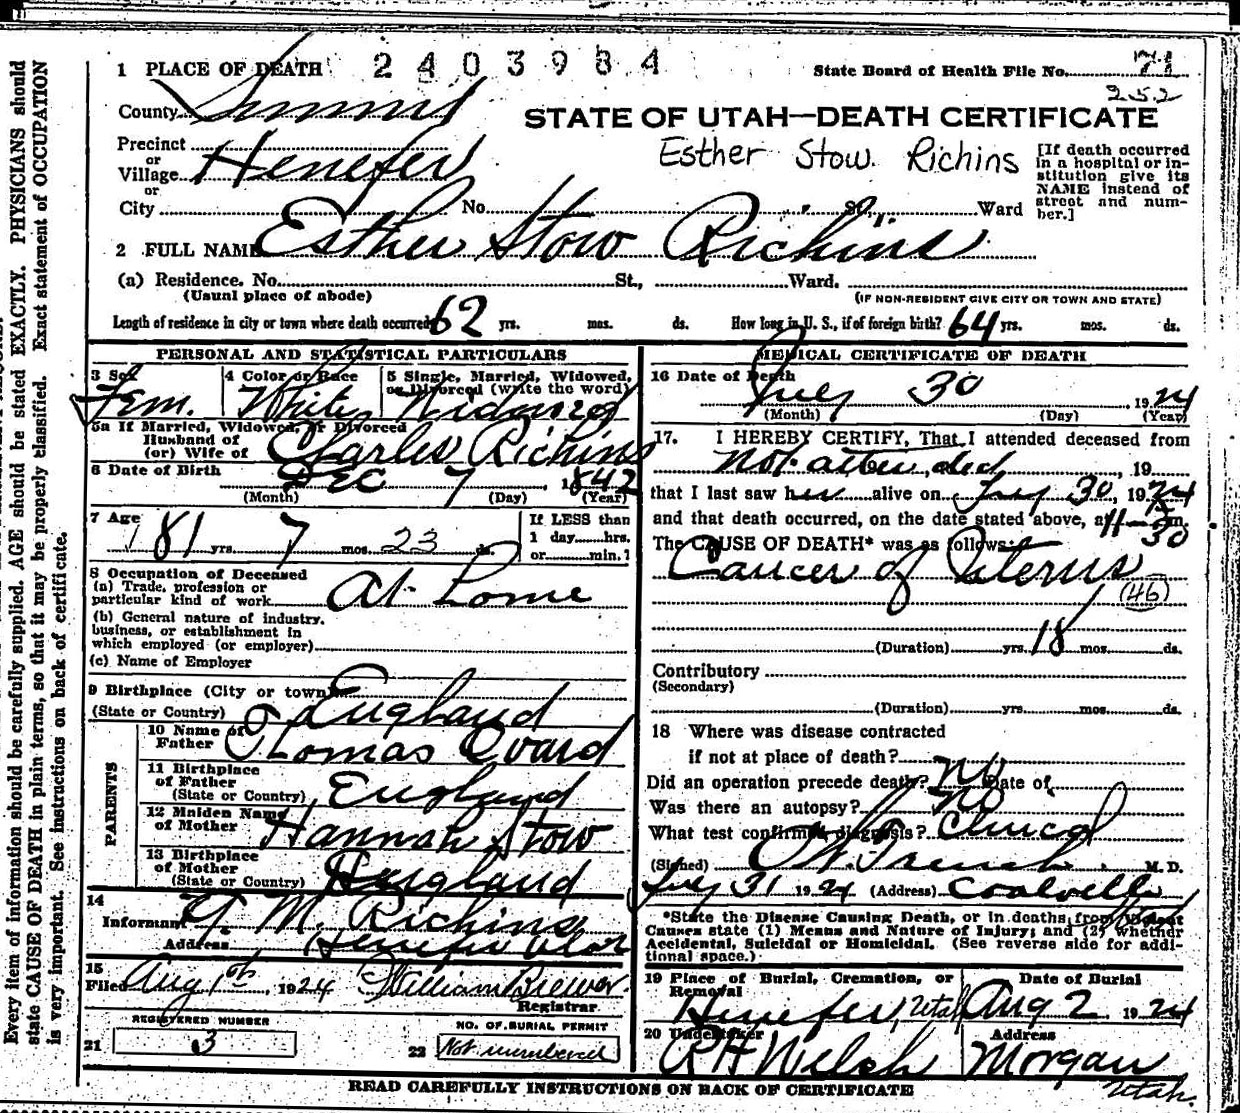 1 PLACE OF DEATH 2403984 State Board of Health File No. 71
252
County Summit STATE OF UTAH—DEATH CERTIFICATE
Precinct
or
Village Henefer Esther Stow. Richins
[If death occurred
in a hospital or in-
stitution give its
NAME instead of
street and num-
ber.]
or
City No. St., Ward
2 FULL NAME Esther Stow Richins
(a) Residence. No. St., Ward.
(Usual place of abode) (IF NON-RESIDENT GIVE CITY OR TOWN AND STATE)
Length of residence in city or town where death occurred 62 yrs. mos. ds. How long in U. S., if of foreign birth? 64 yrs. mos. ds.
PERSONAL AND STATISTICAL PARTICULARS
3 Sex 4 Color or Race 5 Single, Married, Widowed,
or Divorced (write the word)
Fem. White Widowed
5a If Married, Widowed, or Divorced
Husband of
(or) Wife of Charles Richins
6 Date of Birth Dec 7, 1842
(Month) (Day) (Year)
7 Age If LESS than
81 yrs. 7 mos. 23 ds. 1 day hrs.
or min.?
8 Occupation of Deceased
(a) Trade, profession or
particular kind of work At Home
(b) General nature of industry.
business, or establishment in
which employed (or employer)
(c) Name of Employer
9 Birthplace (City or town)
(State or Country) England
PARENTS
10 Name of
Father Thomas Ovard
11 Birthplace
of Father
(State or Country) England
12 Maiden Name
of Mother Hannah Stow
13 Birthplace
of Mother
(State or Country) England
14
Informant M. Richins
Address Henefer Utah
15
Filed Aug 1st, 1924 William Brewer
Registrar
REGISTERED NUMBER NO. OF BURIAL PERMIT
21 3 22 Not numbered
MEDICAL CERTIFICATE OF DEATH
16 Date of Death
July 30 1924
(Month) (Day) (Year)
17. I HEREBY CERTIFY, That I attended deceased from
Not attended, 19
that I last saw her alive on July 30, 1924
and that death occurred, on the date stated above, at 11-30 m.
The CAUSE OF DEATH* was as follows:
Cancer of Uterus
(46)
(Duration) yrs. 18 mos. ds.
Contributory
(Secondary)
(Duration) yrs. mos. ds.
18 Where was disease contracted
if not at place of death?
Did an operation precede death? No Date of
Was there an autopsy? No
What test confirmed diagnosis? Clinical
(Signed) M. D.
July 31 1924 (Address) Coalville
*State the Disease Causing Death, or in deaths from Violent
Causes state (1) Means and Nature of Injury; and (2) whether
Accidental, Suicidal or Homicidal. (See reverse side for addi-
tional space.)
19 Place of Burial, Cremation, or Date of Burial
Removal
Henefer, Utah Aug 2, 1924
20 Undertaker Address
Welch Morgan
Utah.
READ CAREFULLY INSTRUCTIONS ON BACK OF CERTIFICATE
Every item of information should be carefully supplied. AGE should be stated EXACTLY. PHYSICIANS should
state CAUSE OF DEATH in plain terms, so that it may be properly classified. Exact statement of OCCUPATION
is very important. See instructions on back of certificate.